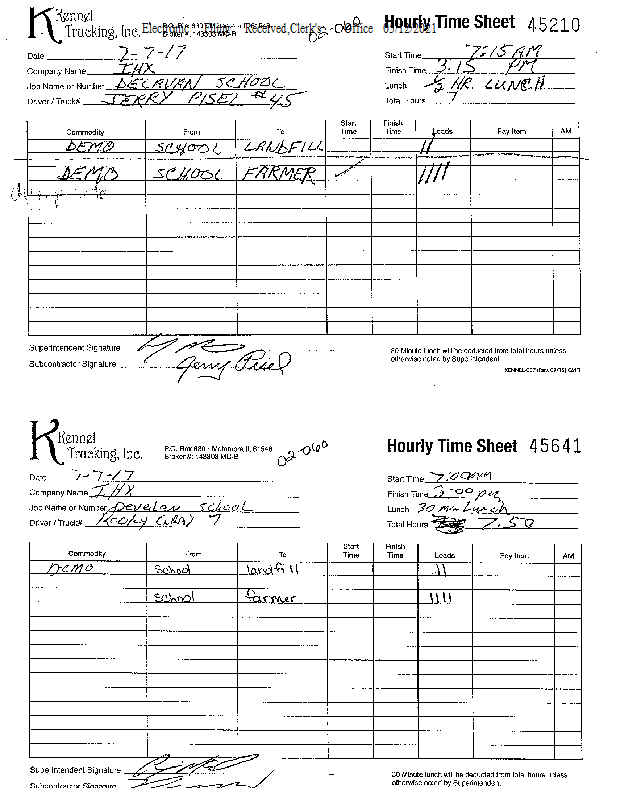 Kennel Trucking, Inc.
Electronic Filing: Received, Clerk's Office 05/12/2021
02-060
Hourly Time Sheet 45210
Date 7-7-17
Company Name IHX
Job Name or Number DELAVAN SCHOOL
Driver / Truck# JERRY PISEL #45
Start Time 7:15 AM
Finish Time 3:15 PM
Lunch 1/2 HR. LUNCH
Total Hours 7
Commodity From To Start Time Finish Time Loads Pay Item AM
DEMO SCHOOL LANDFILL ||
DEMO SCHOOL FARMER ✓ ||||
Superintendent Signature
Subcontractor Signature Jerry Pisel
30 Minute lunch will be deducted from total hours unless
otherwise noted by Superintendent
Kennel Trucking, Inc.
P.O. Box 630 - Metamora, IL 61548
02-060
Hourly Time Sheet 45641
Date 7-7-17
Company Name IHX
Job Name or Number Develan School
Driver / Truck# 7
Start Time 7:00AM
Finish Time 3:00 pm
Lunch 30 min Lunch
Total Hours 7.50
Commodity From To Start Time Finish Time Loads Pay Item AM
Demo School landfill ||
School farmer ||||
Superintendent Signature
Subcontractor Signature
30 Minute lunch will be deducted from total hours unless
otherwise noted by Superintendent.